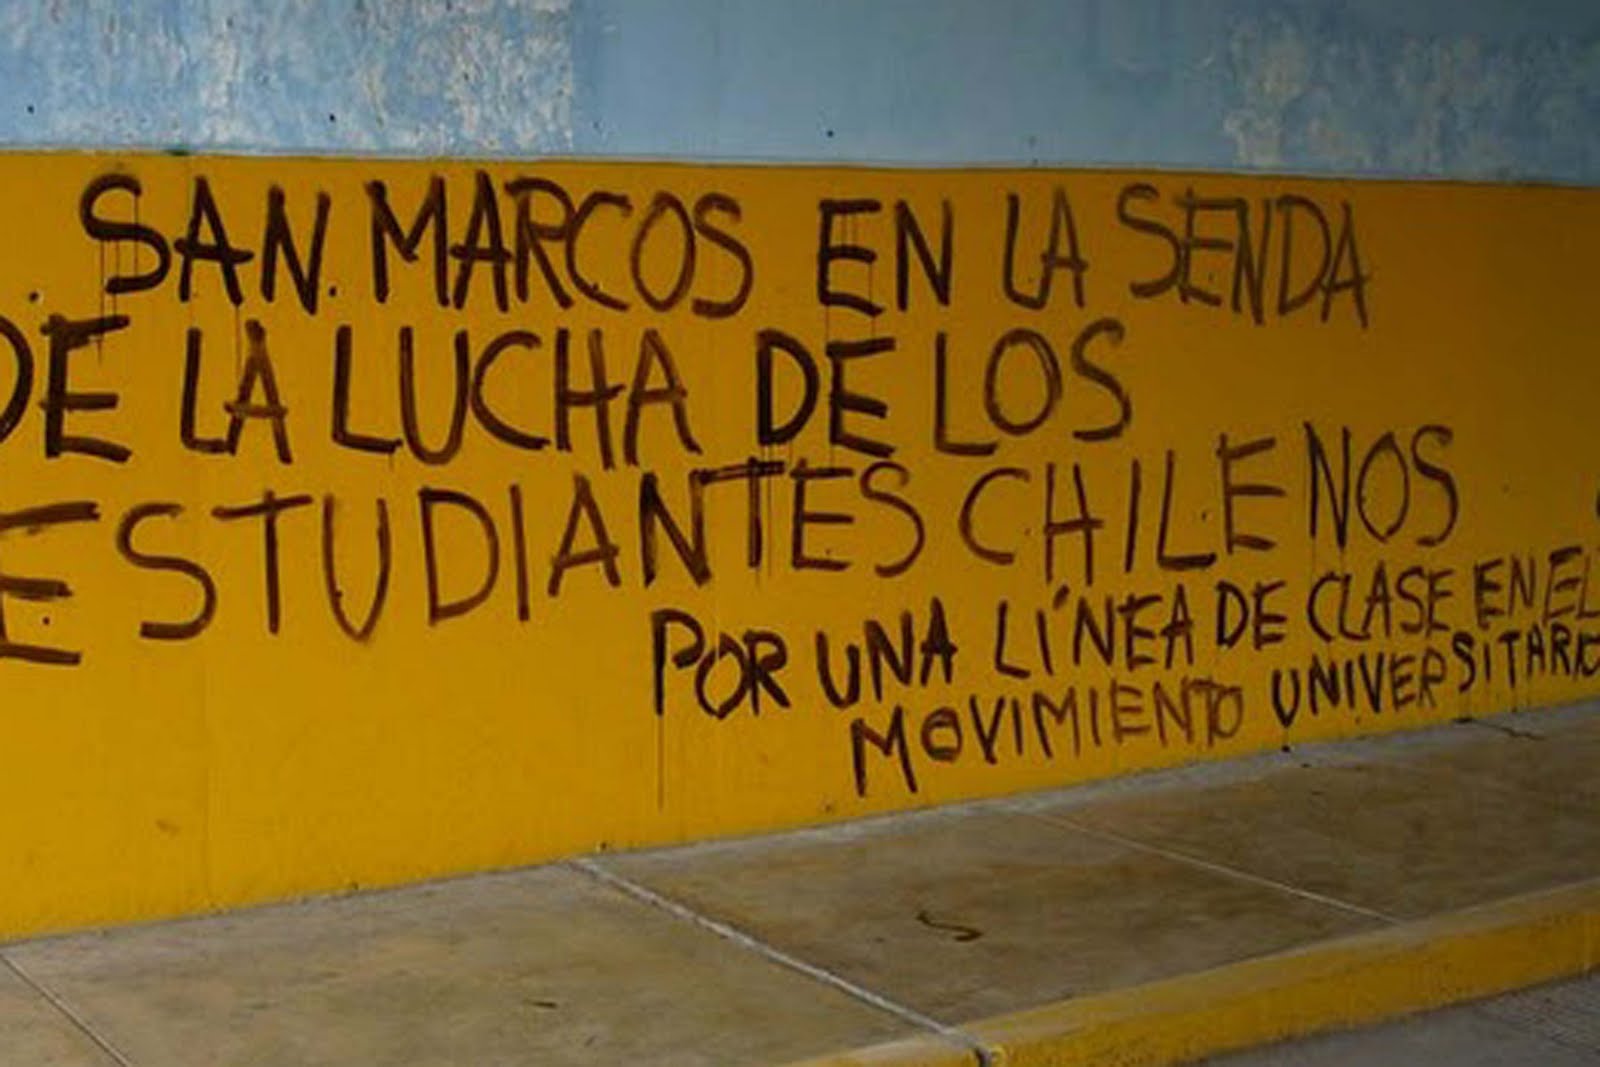 SAN. MARCOS EN LA SENDA
DE LA LUCHA DE LOS
ESTUDIANTES CHILENOS
POR UNA LÍNEA DE CLASE EN EL
MOVIMIENTO UNIVERSITARIO